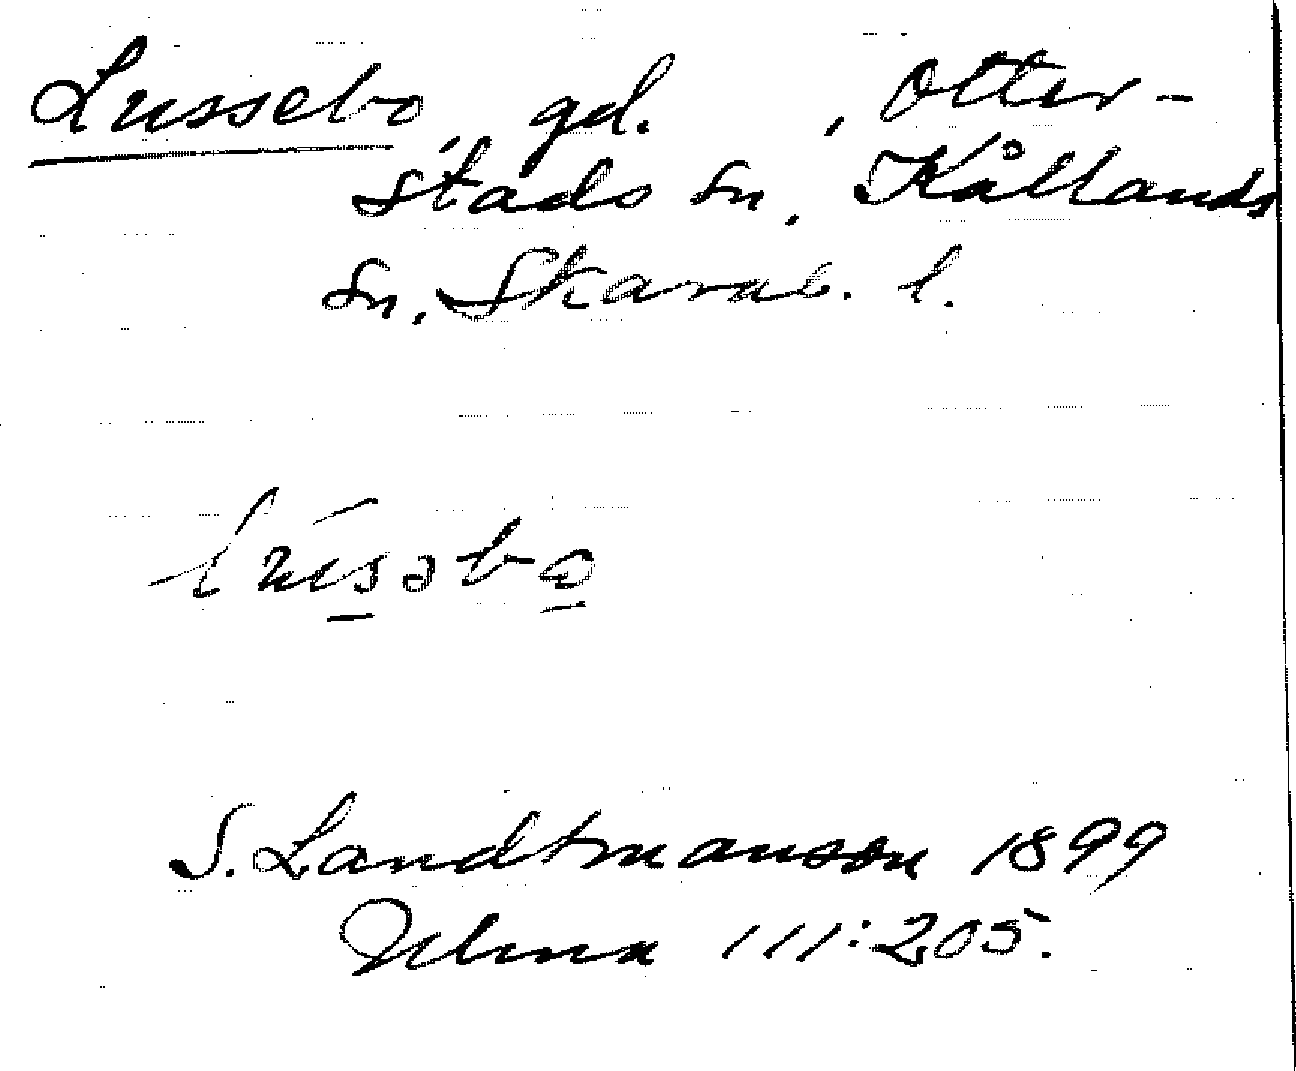 Lussebo, gd. , Otter-
stads sn, Kållands
sn, Skarab. l.
S. Landtmanson 1899
111:205.